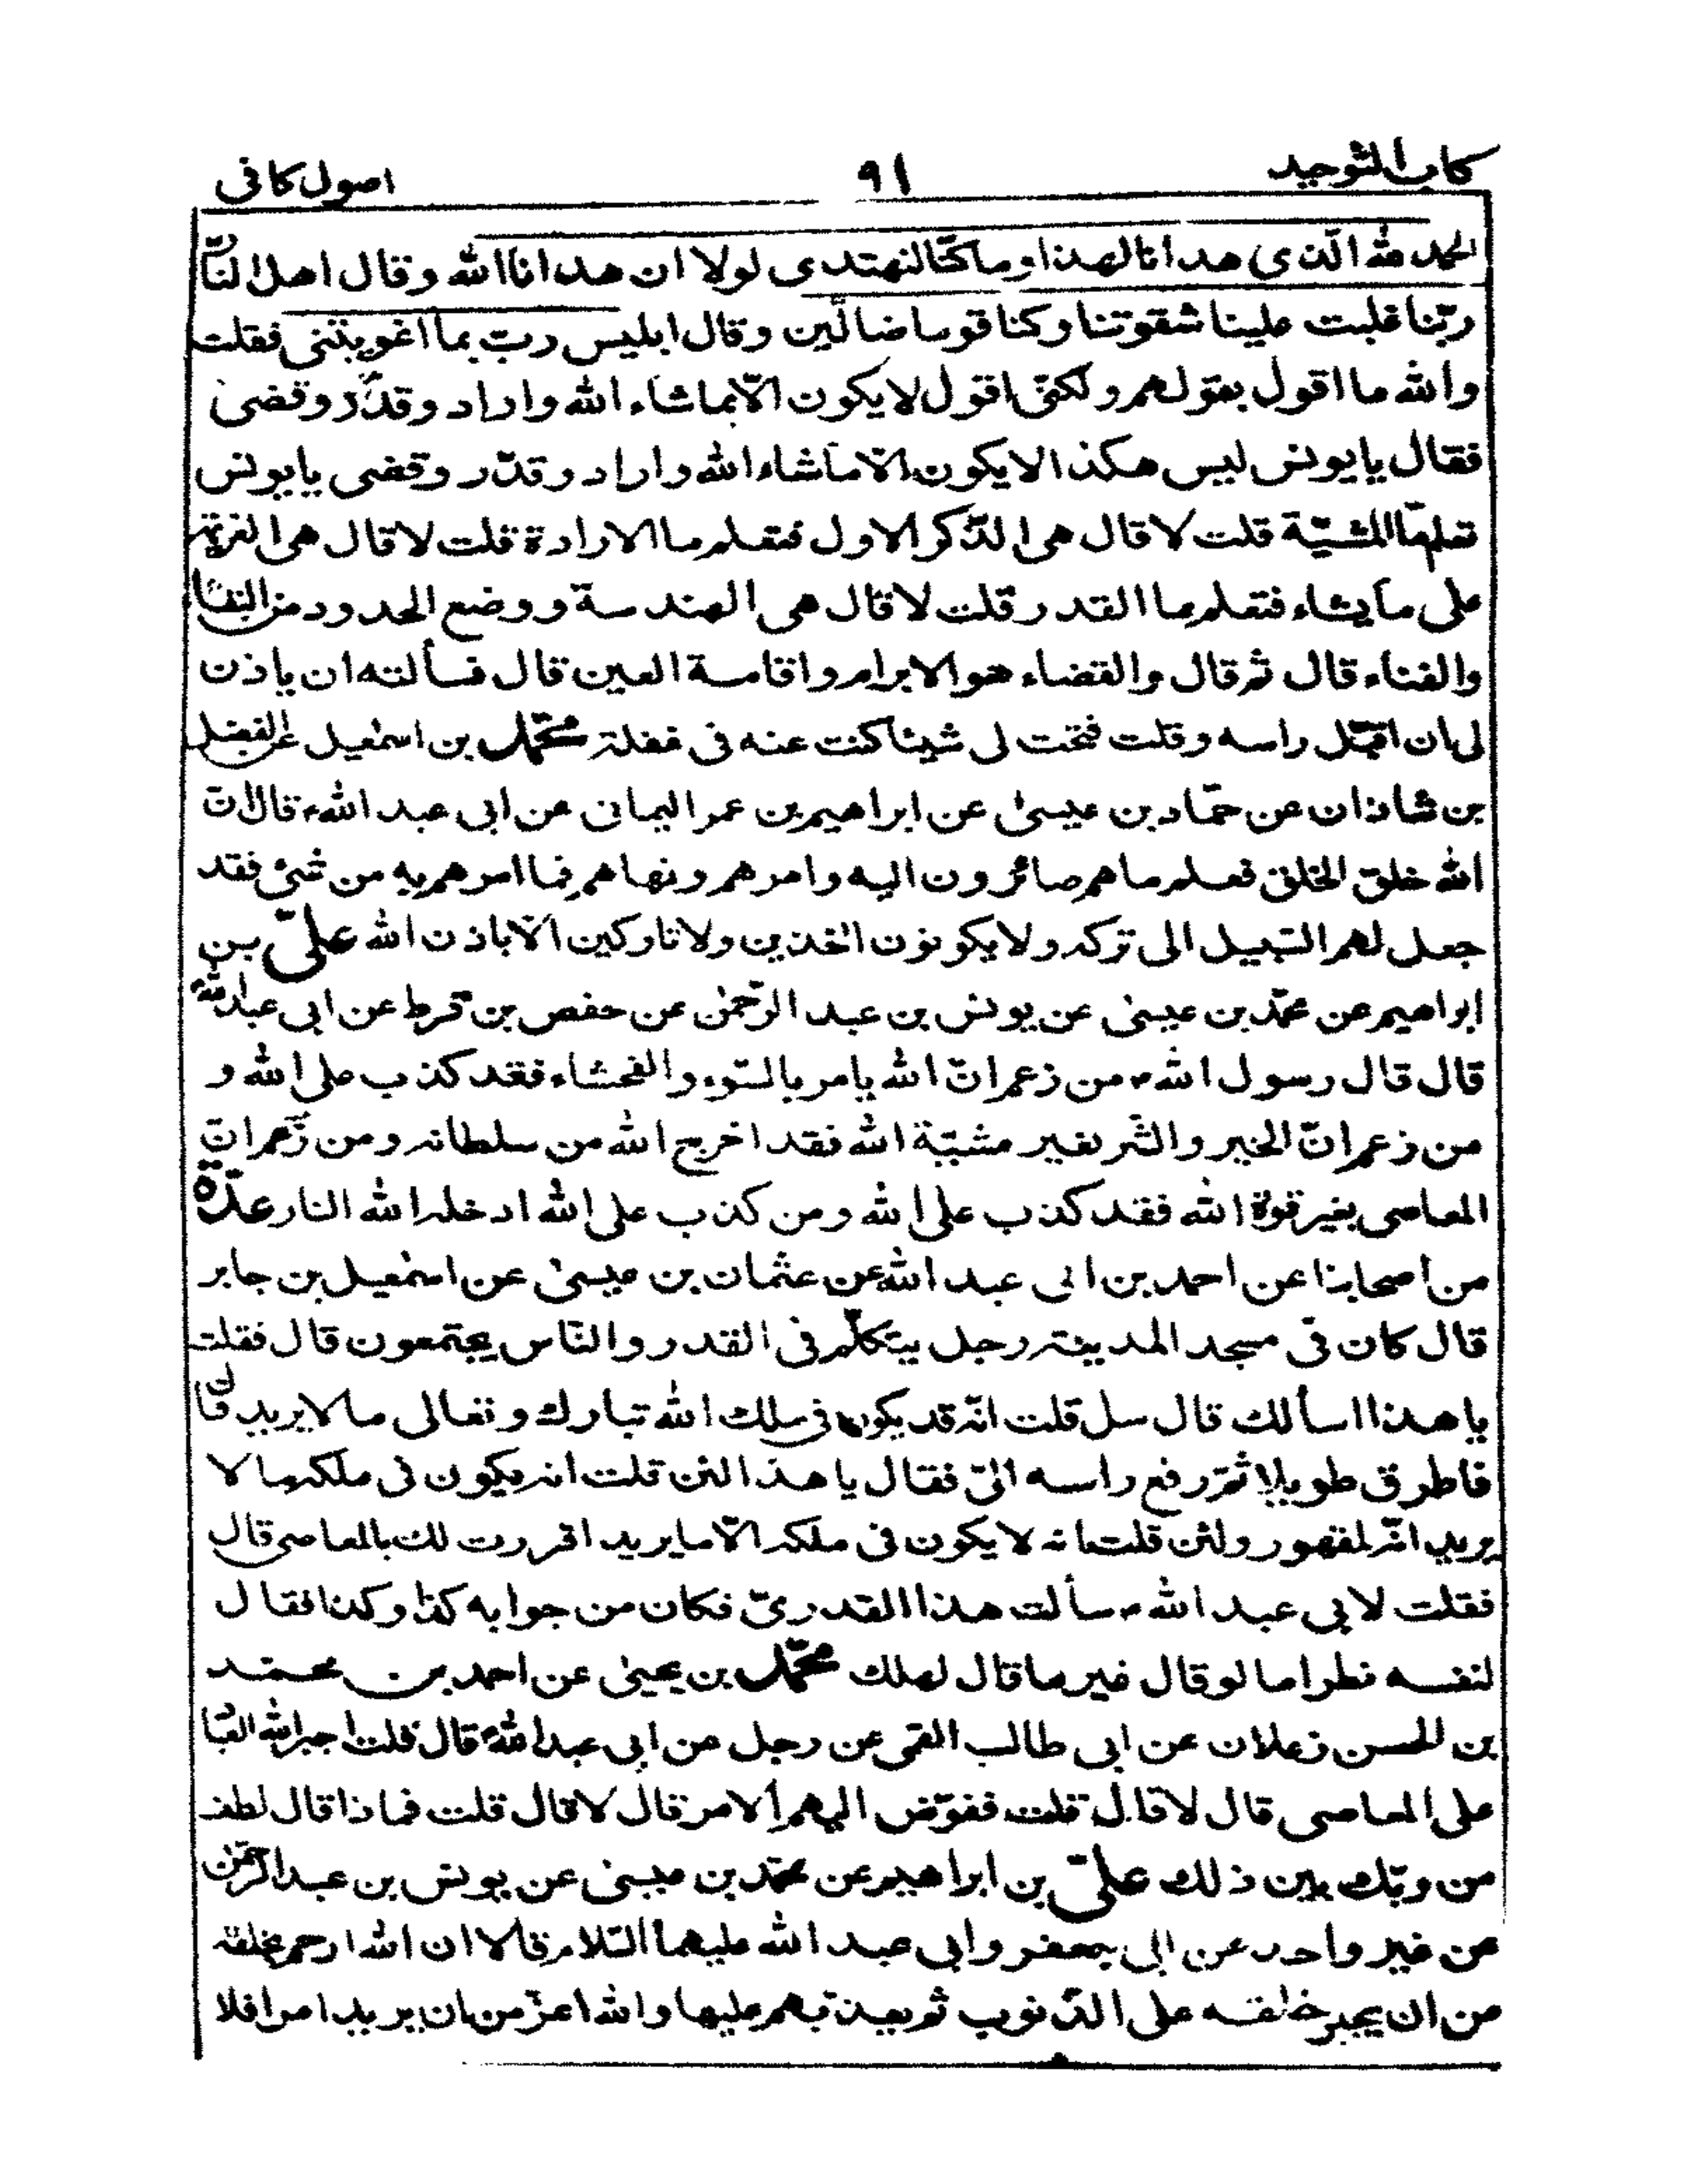 كتاب التوحيد
٩١
اصول كافى
الحمد لله الّذى هدانا لهذا وما كنّا لنهتدى لولا ان هدانا الله وقال اهل النّا
ربّنا غلبت علينا شقوتنا وكنا قوما ضالّين وقال ابليس ربّ بما اغويتنى فقلت
والله ما اقول بقولهم ولكنّى اقول لا يكون الّا بما شاء الله واراد وقدّر وقضى
فقال يا يونس ليس هكذا لا يكون الّا ما شاء الله واراد وقدّر وقضى يا يونس
تعلم ما المشيّة قلت لا قال هى الذّكر الاول فتعلم ما الارادة قلت لا قال هى العزيمة
على ما يشاء فتعلم ما القدر قلت لا قال هى الهندسة ووضع الحدود من البقا
والفناء قال ثم قال والقضاء هو الابرام واقامة العين قال فسألته ان ياذن
لى ان اقبّل راسه وقلت فتحت لى شيئا كنت عنه فى غفلة محمّد بن اسمعيل عن الفضل
بن شاذان عن حمّاد بن عيسى عن ابراهيم بن عمر اليمانى عن ابى عبد الله ع قال انّ
الله خلق الخلق فعلم ما هم صائرون اليه وامرهم ونهاهم فما امرهم به من شئ فقد
جعل لهم السّبيل الى تركه ولا يكونون اخذين ولا تاركين الّا باذن الله علىّ بن
ابراهيم عن محمّد بن عيسى عن يونس بن عبد الرّحمن عن حفص بن قرط عن ابى عبد الله ع
قال قال رسول الله ص من زعم انّ الله يامر بالسّوء والفحشاء فقد كذب على الله و
من زعم انّ الخير والشّر بغير مشيّة الله فقد اخرج الله من سلطانه ومن زعم انّ
المعاصى بغير قوة الله فقد كذب على الله ومن كذب على الله ادخله الله النار عدّة
من اصحابنا عن احمد بن ابى عبد الله عن عثمان بن عيسى عن اسمعيل بن جابر
قال كان فى مسجد المدينة رجل يتكلّم فى القدر والنّاس يجتمعون قال فقلت
يا هذا اسألك قال سل قلت انّه قد يكون فى ملك الله تبارك وتعالى ما لا يريد قال
فاطرق طويلا ثمّ رفع راسه الىّ فقال يا هذا لئن قلت انه يكون فى ملكه ما لا
يريد انّه لمقهور ولئن قلت انه لا يكون فى ملكه الّا ما يريد اقررت لك بالمعاصى قال
فقلت لابى عبد الله ع سألت هذا القدرىّ فكان من جوابه كذا وكذا فقال
لنفسه نظر اما لو قال غير ما قال لهلك محمّد بن يحيى عن احمد بن محمد
بن الحسن زعلان عن ابى طالب القمى عن رجل عن ابى عبد الله ع قال قلت اجبر الله العبا
على المعاصى قال لا قال قلت ففوّض اليهم الامر قال لا قال قلت فماذا قال لطف
من ربّك بين ذلك علىّ بن ابراهيم عن محمّد بن عيسى عن يونس بن عبد الرّحمن
عن غير واحد عن ابى جعفر وابى عبد الله عليهما السّلام قالا ان الله ارحم بخلقه
من ان يجبر خلقه على الذّنوب ثم يعذّبهم عليها والله اعزّ من ان يريد امرا فلا